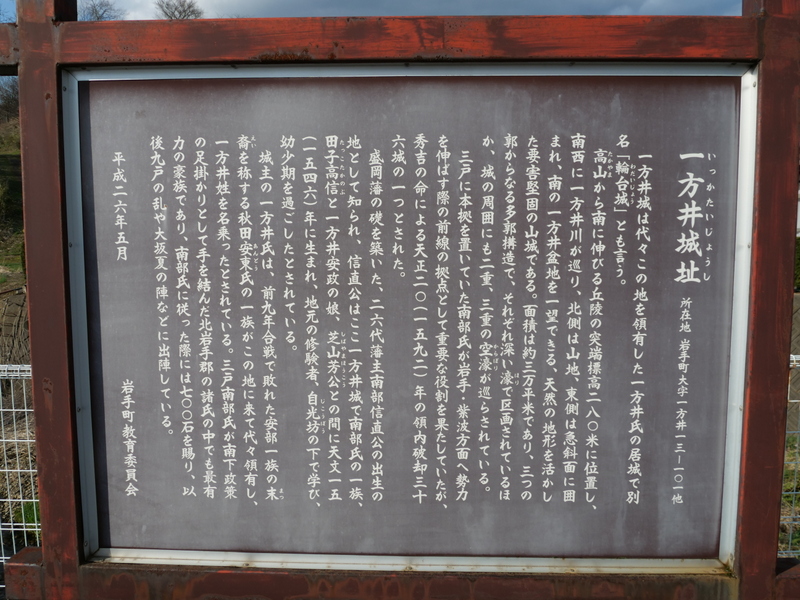 いっかたいじょうし
一方井城址
所在地 岩手町大字一方井一三―一〇一他
一方井城は代々この地を領有した一方井氏の居城で別
名「輪台城」とも言う。
高山から南に伸びる丘陵の突端標高二八〇米に位置し、
南西に一方井川が巡り、北側は山地、東側は急斜面に囲
まれ、南の一方井盆地を一望できる、天然の地形を活かし
た要害堅固の山城である。面積は約三万平米であり、三つの
郭からなる多郭構造で、それぞれ深い濠で区画されているほ
か、城の周囲にも二重、三重の空濠が巡らされている。
三戸に本拠を置いていた南部氏が岩手・紫波方面へ勢力
を伸ばす際の前線の拠点として重要な役割を果たしていたが、
秀吉の命による天正二〇(一五九二)年の領内破却三十
六城の一つとされた。
盛岡藩の礎を築いた、二六代藩主南部信直公の出生の
地として知られ、信直公はここ一方井城で南部氏の一族、
田子高信と一方井安政の娘、芝山芳公との間に天文一五
(一五四六)年に生まれ、地元の修験者、自光坊の下で学び、
幼少期を過ごしたとされている。
城主の一方井氏は、前九年合戦で敗れた安部一族の末
裔を称する秋田安東氏の一族がこの地に来て代々領有し、
一方井姓を名乗ったとされている。三戸南部氏が南下政策
の足掛かりとして手を結んだ北岩手郡の諸氏の中でも最有
力の豪族であり、南部氏に従った際には七〇〇石を賜り、以
後九戸の乱や大坂夏の陣などに出陣している。
平成二六年五月
岩手町教育委員会